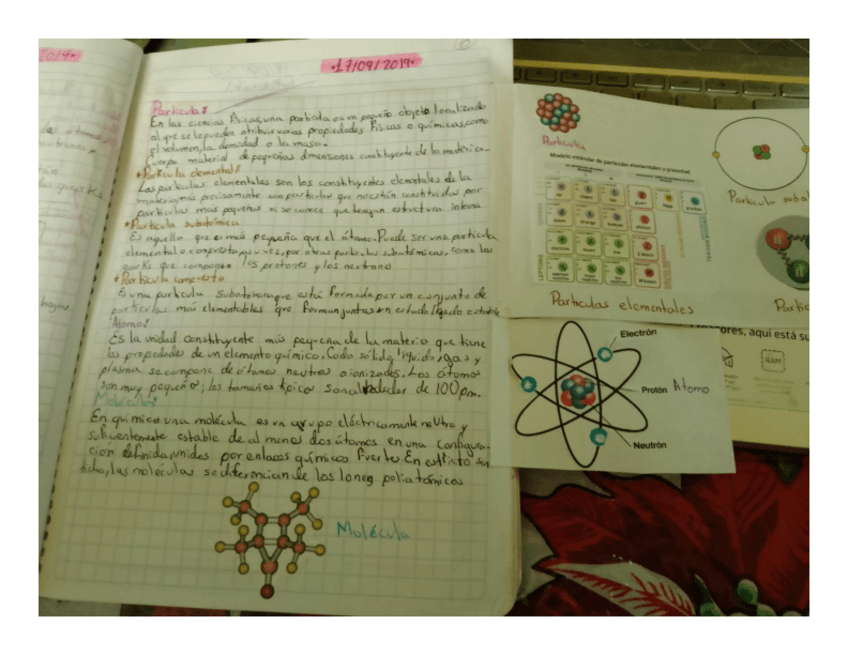 ·17/09/2019·
Partículas
En las ciencias físicas, una partícula es un pequeño objeto localizado
al que se le pueden atribuir varias propiedades físicas o químicas, como
el volumen, la densidad o la masa.
Cuerpo material de pequeñas dimensiones constituyente de la matérica
*Partícula elemental
Las partículas elementales son los constituyentes elementales de la
materia, más precisamente son partículas que no están constituidas por
partículas más pequeñas ni se conoce que tengan estructura interna
*Partícula subatómica
Es aquella que es más pequeña que el átomo. Puede ser una partícula
elemental o compuesta, a su vez, por otras partículas subatómicas, como los
quarks que componen los protones y los neutrones
*Partícula compuesta
Es una partícula subatómica que está formada por un conjunto de
partículas más elementales que forman juntas un estado ligado estable
Átomos
Es la unidad constituyente más pequeña de la materia que tiene
las propiedades de un elemento químico. Cada sólido, líquido, gas y
plasma se compone de átomos neutros o ionizados. Los átomos
son muy pequeños; los tamaños típicos son alrededor de 100pm.
Moléculas
En química una molécula es un grupo eléctricamente neutro y
suficientemente estable de al menos dos átomos en una configura-
ción definida, unidos por enlaces químicos fuertes. En estricto sen
tido, las moléculas se diferencian de los Iones poliatómicos
Molécula
Partícula
Modelo estándar de partículas elementales y gravedad
QUARKS
LEPTONS
Partículas elementales
Partícula subat
Partíc
Electrón
Protón
Átomo
Neutrón
ores, aquí está su
RAM